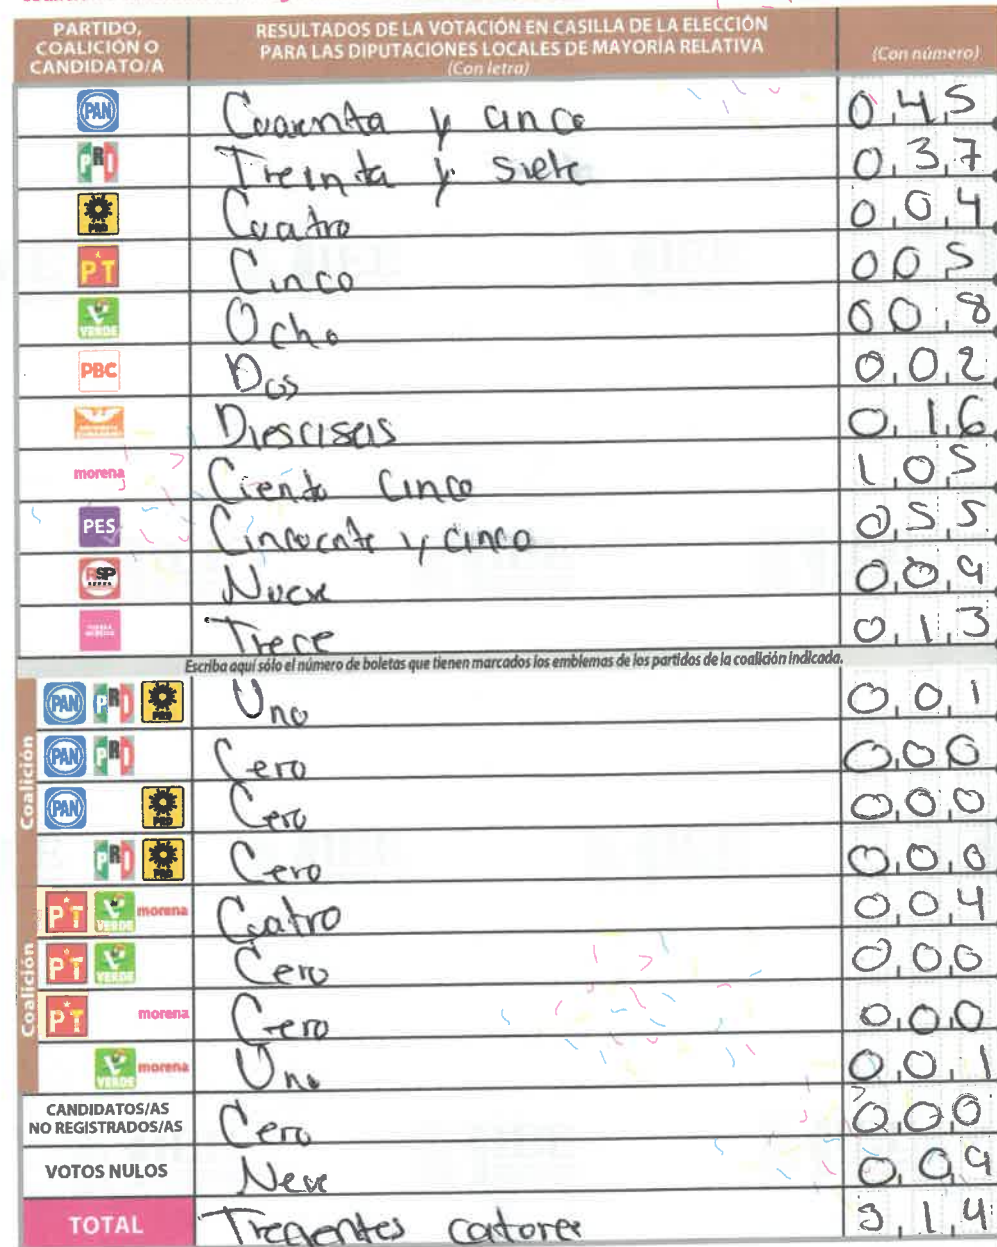 PARTIDO, COALICIÓN O CANDIDATO/A RESULTADOS DE LA VOTACIÓN EN CASILLA DE LA ELECCIÓN PARA LAS DIPUTACIONES LOCALES DE MAYORÍA RELATIVA (Con letra) (Con número)
PAN Cuarenta y cinco 045
PRI Treinta y siete 037
PRD Cuatro 004
PT Cinco 005
VERDE Ocho 008
PBC Dos 002
Diesciseis 016
morena Ciento Cinco 105
PES Cincuenta y cinco 055
RSP Nueve 009
Trece 013
Escriba aquí sólo el número de boletas que tienen marcados los emblemas de los partidos de la coalición indicada.
Coalición
PAN PRI PRD Uno 001
PAN PRI Cero 000
PAN PRD Cero 000
PRI PRD Cero 000
Coalición
PT VERDE morena Cuatro 004
PT VERDE Cero 000
PT morena Cero 000
VERDE morena Uno 001
CANDIDATOS/AS NO REGISTRADOS/AS Cero 000
VOTOS NULOS Neve 009
TOTAL catorce 314